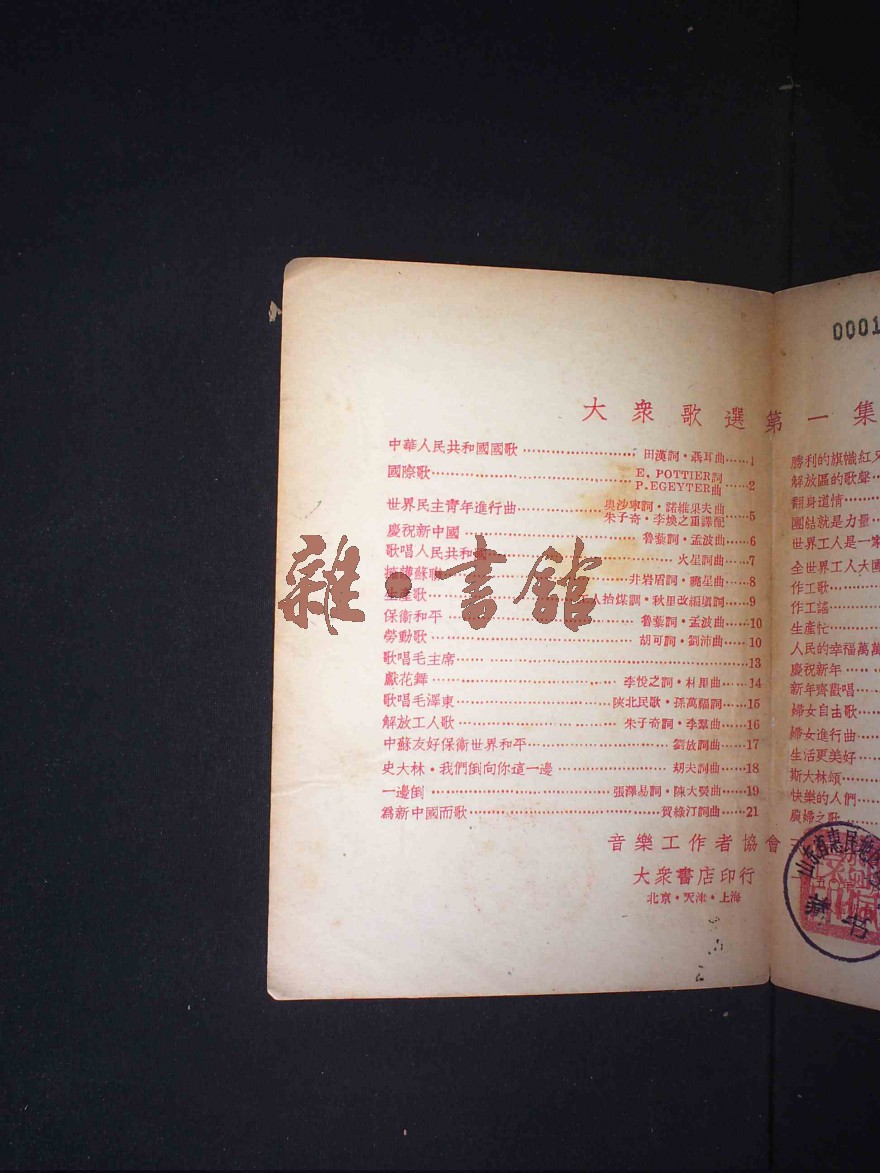 0001
大衆歌選第一集
中華人民共和國國歌……田漢詞・聶耳曲……1
國際歌……E. POTTIER詞 P. EGEYTER曲……2
世界民主青年進行曲……奧沙寧詞・諾維果夫曲 朱子奇・李煥之重譯配……5
慶祝新中國……魯藜詞・孟波曲……6
歌唱人民共和國……火星詞曲……7
擁護蘇聯……井岩盾詞・曉星曲……8
生產歌……人拾煤調・秋里改編填詞……9
保衛和平……魯藜詞・孟波曲……10
勞動歌……胡可詞・劉沛曲……10
歌唱毛主席……13
獻花舞……李悅之詞・村里曲……14
歌唱毛澤東……陝北民歌・孫萬福詞……15
解放工人歌……朱子奇詞・李羣曲……16
中蘇友好保衛世界和平……劉放詞曲……17
史大林・我們倒向你這一邊……胡夫詞曲……18
一邊倒……張澤易詞・陳大熒曲……19
爲新中國而歌……賀綠汀詞曲……21
音樂工作者協會
大衆書店印行
北京・天津・上海
勝利的旗幟紅又
解放區的歌聲
翻身道情
團結就是力量
世界工人是一家
全世界工人大團
作工歌
作工謠
生產忙
人民的幸福萬萬
慶祝新年
新年齊歡唱
婦女自由歌
婦女進行曲
生活更美好
斯大林頌
快樂的人們
農婦之歌
山东省惠民地
雜・書館